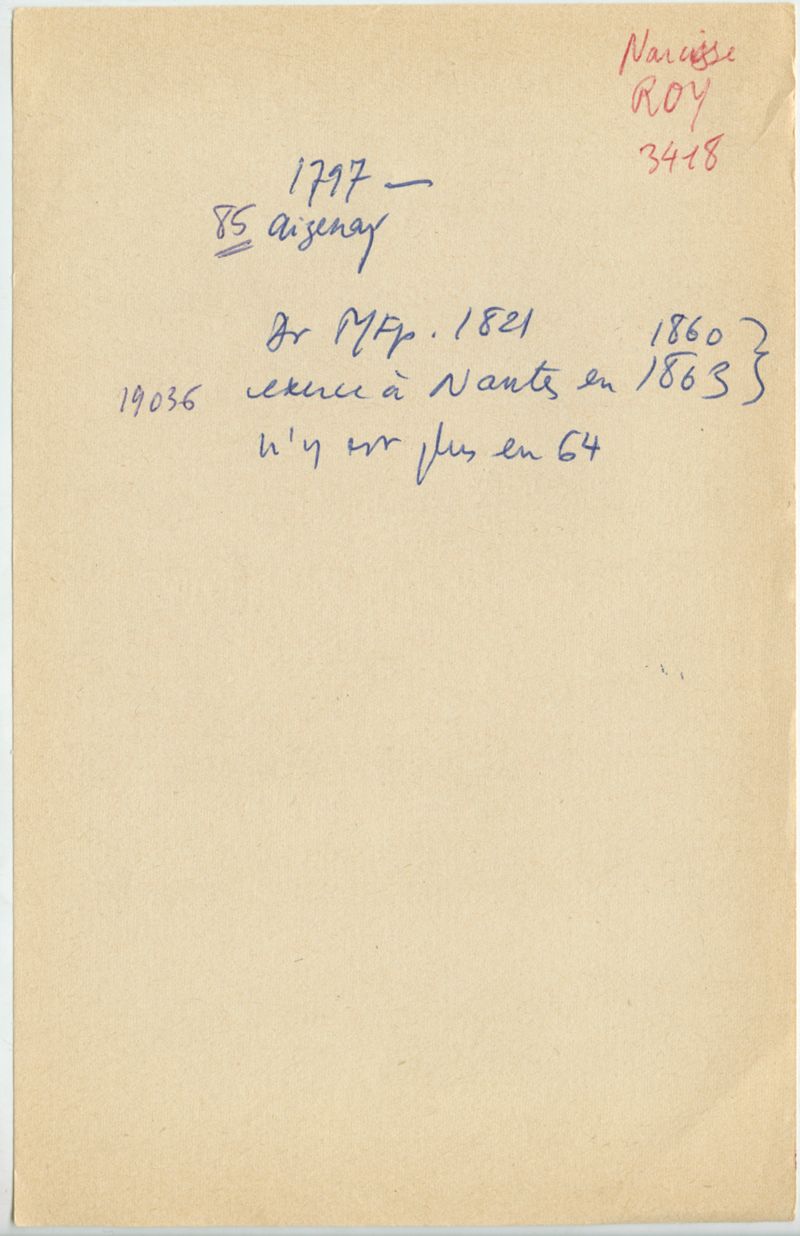 Narcisse
ROY
3418
1797 —
85 Aizenay
Dr MFp. 1821
1860 }
19036 exerce à Nantes en 1863 }
n'y est plus en 64